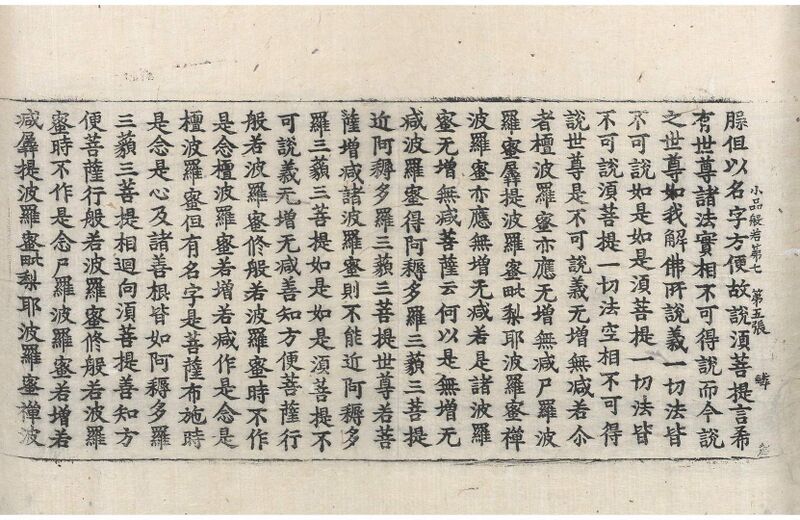 小品般若第七 第五張
但以名字方便故說須菩提言希
有世尊諸法實相不可得說而今說
之世尊如我解佛所說義一切法皆
不可說如是如是須菩提一切法皆
不可說須菩提一切法空相不可得
說世尊是不可說義无增無减若尒
者檀波羅蜜亦應无增無减尸羅波
羅蜜羼提波羅蜜毗梨耶波羅蜜禪
波羅蜜亦應無增无减若是諸波羅
蜜无增無减菩薩云何以是無增无
减波羅蜜得阿耨多羅三藐三菩提
近阿耨多羅三藐三菩提世尊若菩
薩增减諸波羅蜜則不能近阿耨多
羅三藐三菩提如是如是須菩提不
可說義无增无减善知方便菩薩行
般若波羅蜜修般若波羅蜜時不作
是念檀波羅蜜若增若减作是念是
檀波羅蜜但有名字是菩薩布施時
是念是心及諸善根皆如阿耨多羅
三藐三菩提相迴向須菩提善知方
便菩薩行般若波羅蜜修般若波羅
蜜時不作是念尸羅波羅蜜若增若
减羼提波羅蜜毗梨耶波羅蜜禪波